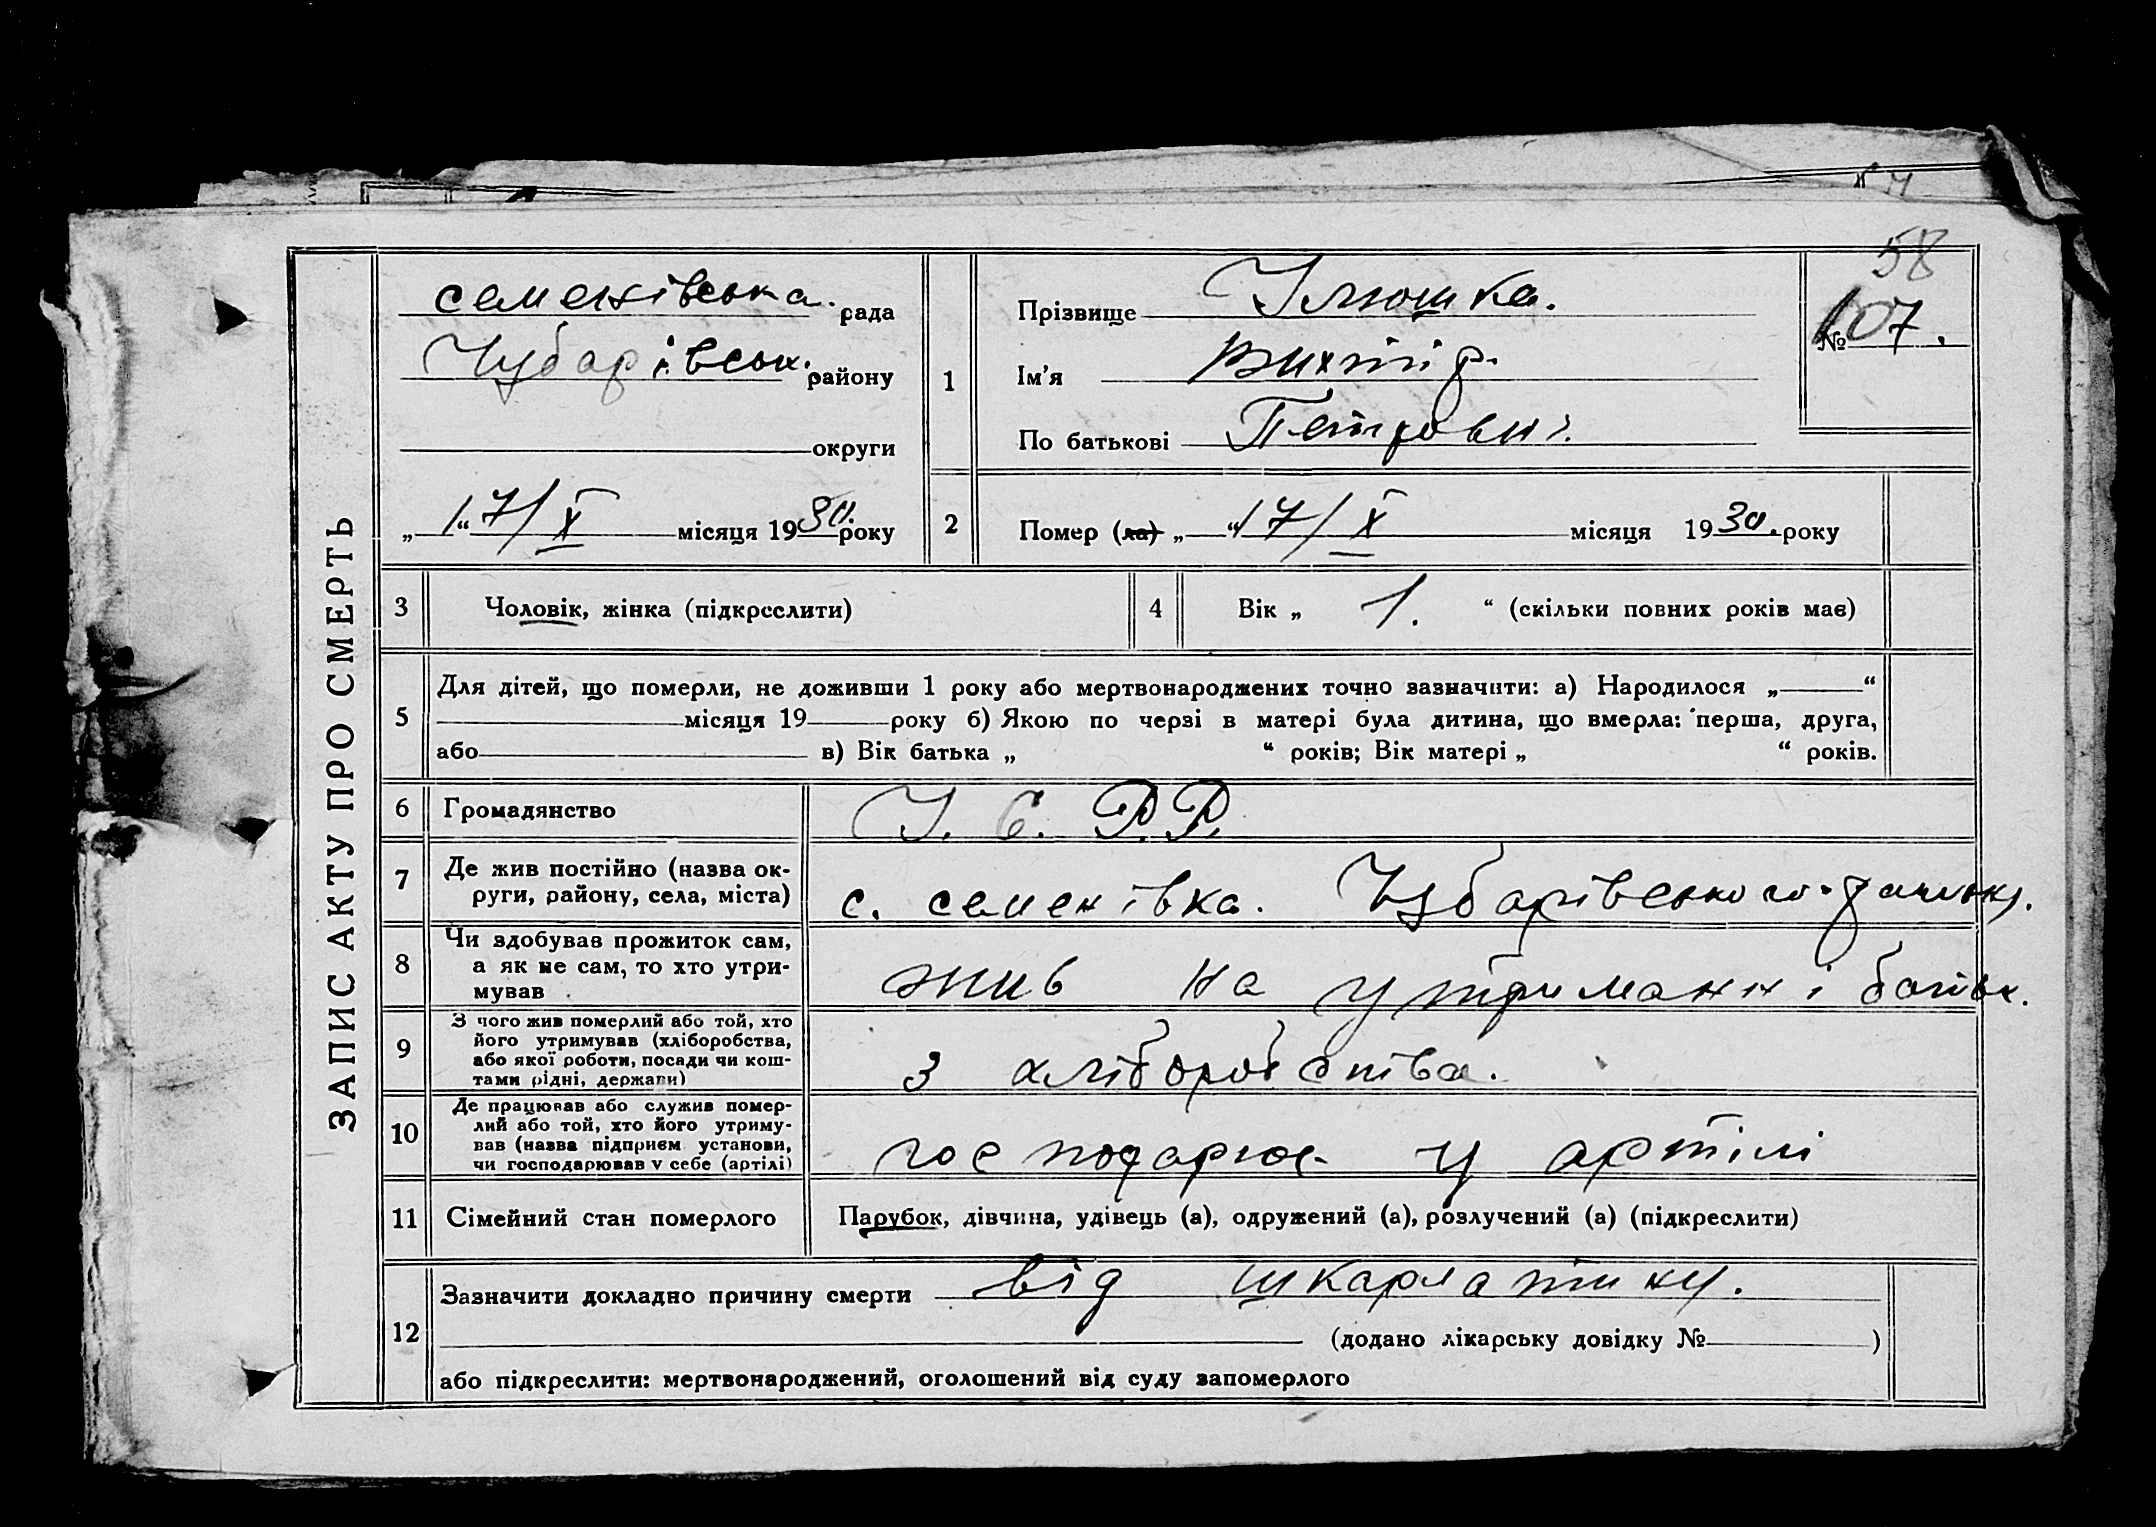 58
ЗАПИС АКТУ ПРО СМЕРТЬ
семенівська. рада
Чубарівськ. району
округи
„17/X“ місяця 1930. року
№ 107.
1
Прізвище Ілюшка.
Ім’я Вихтір.
По батькові Петрович.
2
Помер (ла) „17/X“ місяця 1930. року
3 Чоловік, жінка (підкреслити)
4 Вік „ 1. “ (скільки повних років має)
5
Для дітей, що померли, не доживши 1 року або мертвонароджених точно зазначити: а) Народилося „ “
місяця 19 року б) Якою по черзі в матері була дитина, що вмерла: перша, друга,
або в) Вік батька „ “ років; Вік матері „ “ років.
6 Громадянство У. С. Р.Р.
7 Де жив постійно (назва ок-
руги, району, села, міста)
с. семенівка. Чубарівського району.
8 Чи здобував прожиток сам,
а як не сам, то хто утри-
мував
жив на утриманні батьк.
9 З чого жив померлий або той, хто
його утримував (хліборобства,
або якої роботи, посади чи кош-
тами рідні, держави)
з хліборобства.
10 Де працював або служив помер-
лий або той, хто його утриму-
вав (назва підприєм. установи,
чи господарював у себе (артілі)
господарює у артілі
11 Сімейний стан померлого
Парубок, дівчина, удівець (а), одружений (а), розлучений (а) (підкреслити)
12
Зазначити докладно причину смерти від шкарлатини.
(додано лікарську довідку № )
або підкреслити: мертвонароджений, оголошений від суду запомерлого